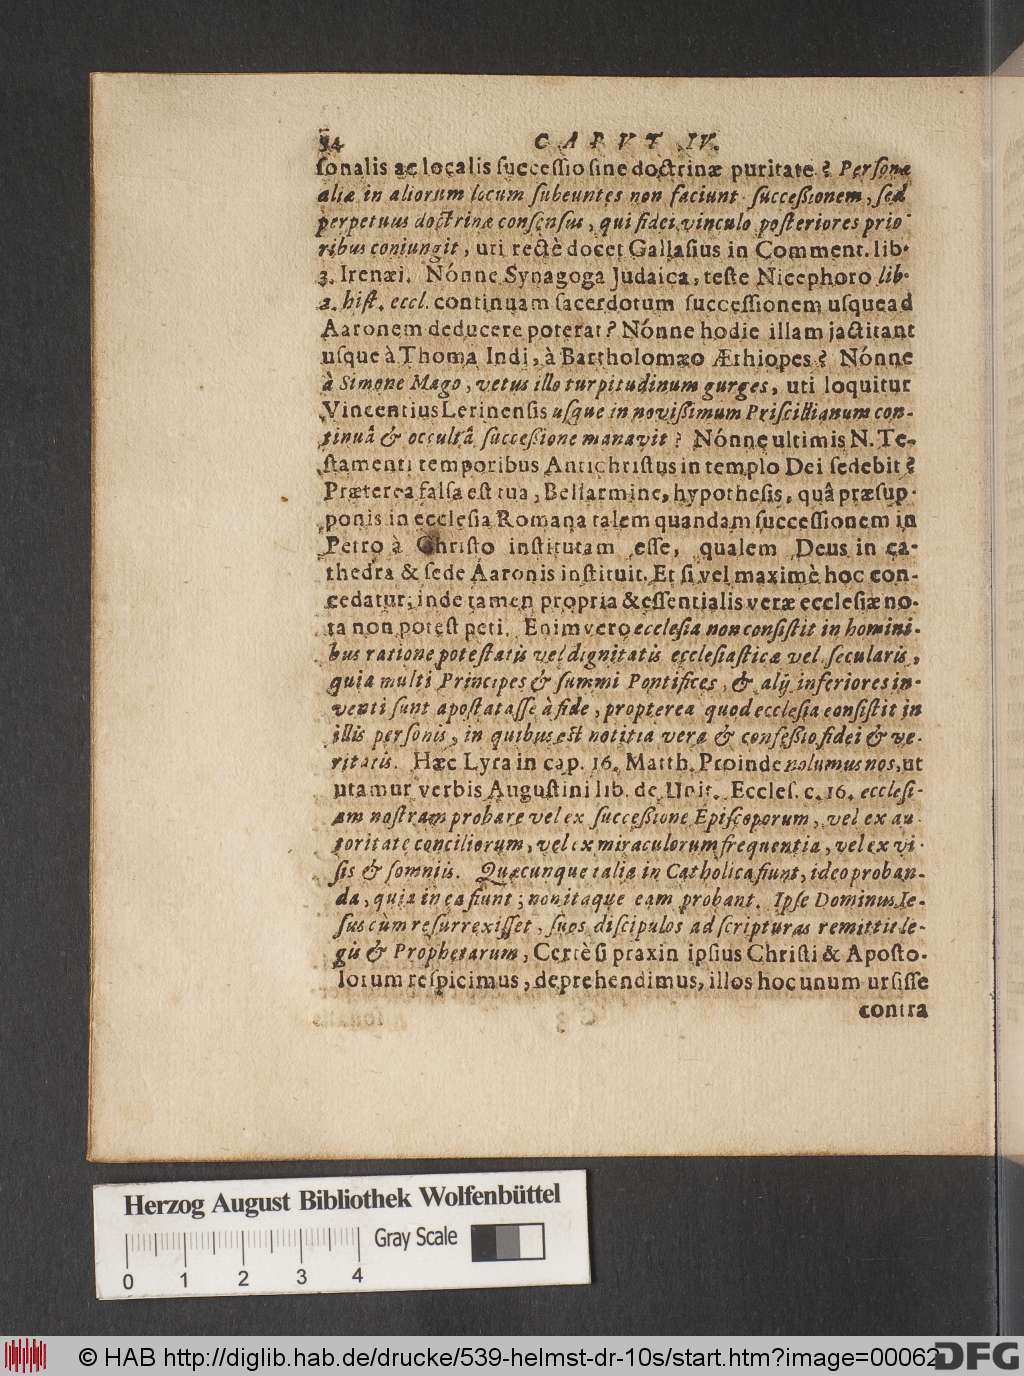 54 CAPVT IV.
ſonalis ac localis ſucceſſio ſine doctrinæ puritate? Perſonæ
aliæ in aliorum locum ſubeuntes non faciunt ſucceßionem, ſed
perpetuus doctrinæ conſenſus, qui fidei vinculo poſteriores prio
ribus coniungit, uti rectè docet Gallaſius in Comment. lib.
3. Irenæi. Nónne Synagoga Judaica, teſte Nicephoro lib.
2. hiſt. eccl. continuam ſacerdotum ſucceſſionem uſque ad
Aaronem deducere poterat? Nónne hodie illam jactitant
uſque à Thoma Indi, à Bartholomæo Æthiopes? Nónne
à Simone Mago, vetus illo turpitudinum gurges, uti loquitur
Vincentius Lerinenſis uſque in novißimum Priſcillianum con-
tinuâ & occultâ ſucceßione manavit? Nónne ultimis N. Te-
ſtamenti temporibus Antichriſtus in templo Dei ſedebit?
Præterea falſa eſt tua, Bellarmine, hypotheſis, quâ præſup-
ponis in eccleſia Romana talem quandam ſucceſſionem in
Petro à Chriſto inſtitutam eſſe, qualem Deus in ca-
thedra & ſede Aaronis inſtituit. Et ſi vel maximè hoc con-
cedatur, inde tamen propria & eſſentialis veræ eccleſiæ no-
ta non poteſt peti. Enim vero eccleſia non conſiſtit in homini-
bus ratione poteſtatis vel dignitatis eccleſiaſticæ vel ſecularis,
quia multi Principes & ſummi Pontifices, & alij inferiores in-
venti ſunt apoſtataſſe à fide, propterea quod eccleſia conſiſtit in
illis perſonis, in quibus eſt notitia vera & confeßio fidei & ve-
ritatis. Hæc Lyra in cap. 16. Matth. Proinde nolumus nos, ut
utamur verbis Auguſtini lib. de Unit. Eccleſ. c. 16. eccleſi-
am noſtram probare vel ex ſucceßione Epiſcoporum, vel ex au-
toritate conciliorum, vel ex miraculorum frequentia, vel ex vi-
ſis & ſomniis. Quæcunque talia in Catholica fiunt, ideo proban-
da, quia in ea fiunt; non itaque eam probant. Ipſe Dominus Ie-
ſus cùm reſurrexiſſet, ſuos diſcipulos ad ſcripturas remittit le-
gis & Prophetarum, Certè ſi praxin ipſius Chriſti & Apoſto-
lorum reſpicimus, deprehendimus, illos hoc unum urſiſſe
contra
Herzog August Bibliothek Wolfenbüttel
Gray Scale
0 1 2 3 4
© HAB http://diglib.hab.de/drucke/539-helmst-dr-10s/start.htm?image=00062
DFG